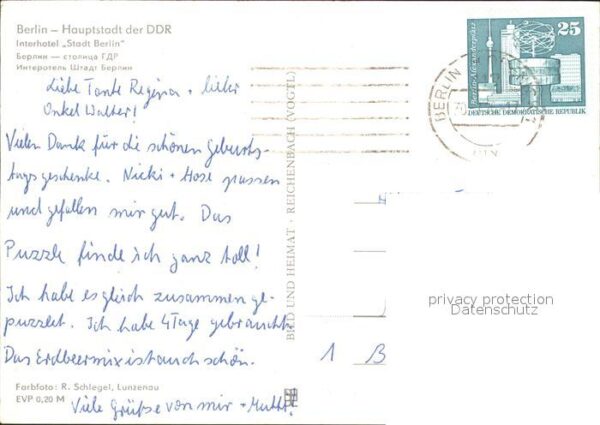 Berlin – Hauptstadt der DDR
Interhotel „Stadt Berlin"
Берлин — столица ГДР
Интеротель Штадт Берлин
Liebe Tante Regina + lieber
Onkel Walter!
Vielen Dank für die schönen Geburts-
tagsgeschenke. Nicki + Hose passen
und gefallen mir gut. Das
Puzzle finde ich ganz toll!
Ich habe es gleich zusammen ge-
puzzelt. Ich habe 4 Tage gebraucht.
Das Erdbeermix ist auch schön.
Viele Grüße von mir + Mutti.
Farbfoto: R. Schlegel, Lunzenau
EVP 0,20 M
BILD UND HEIMAT · REICHENBACH (VOGTL)
25
Berlin-Alexanderplatz
DEUTSCHE DEMOKRATISCHE REPUBLIK
BERLIN
1 B
privacy protection
Datenschutz